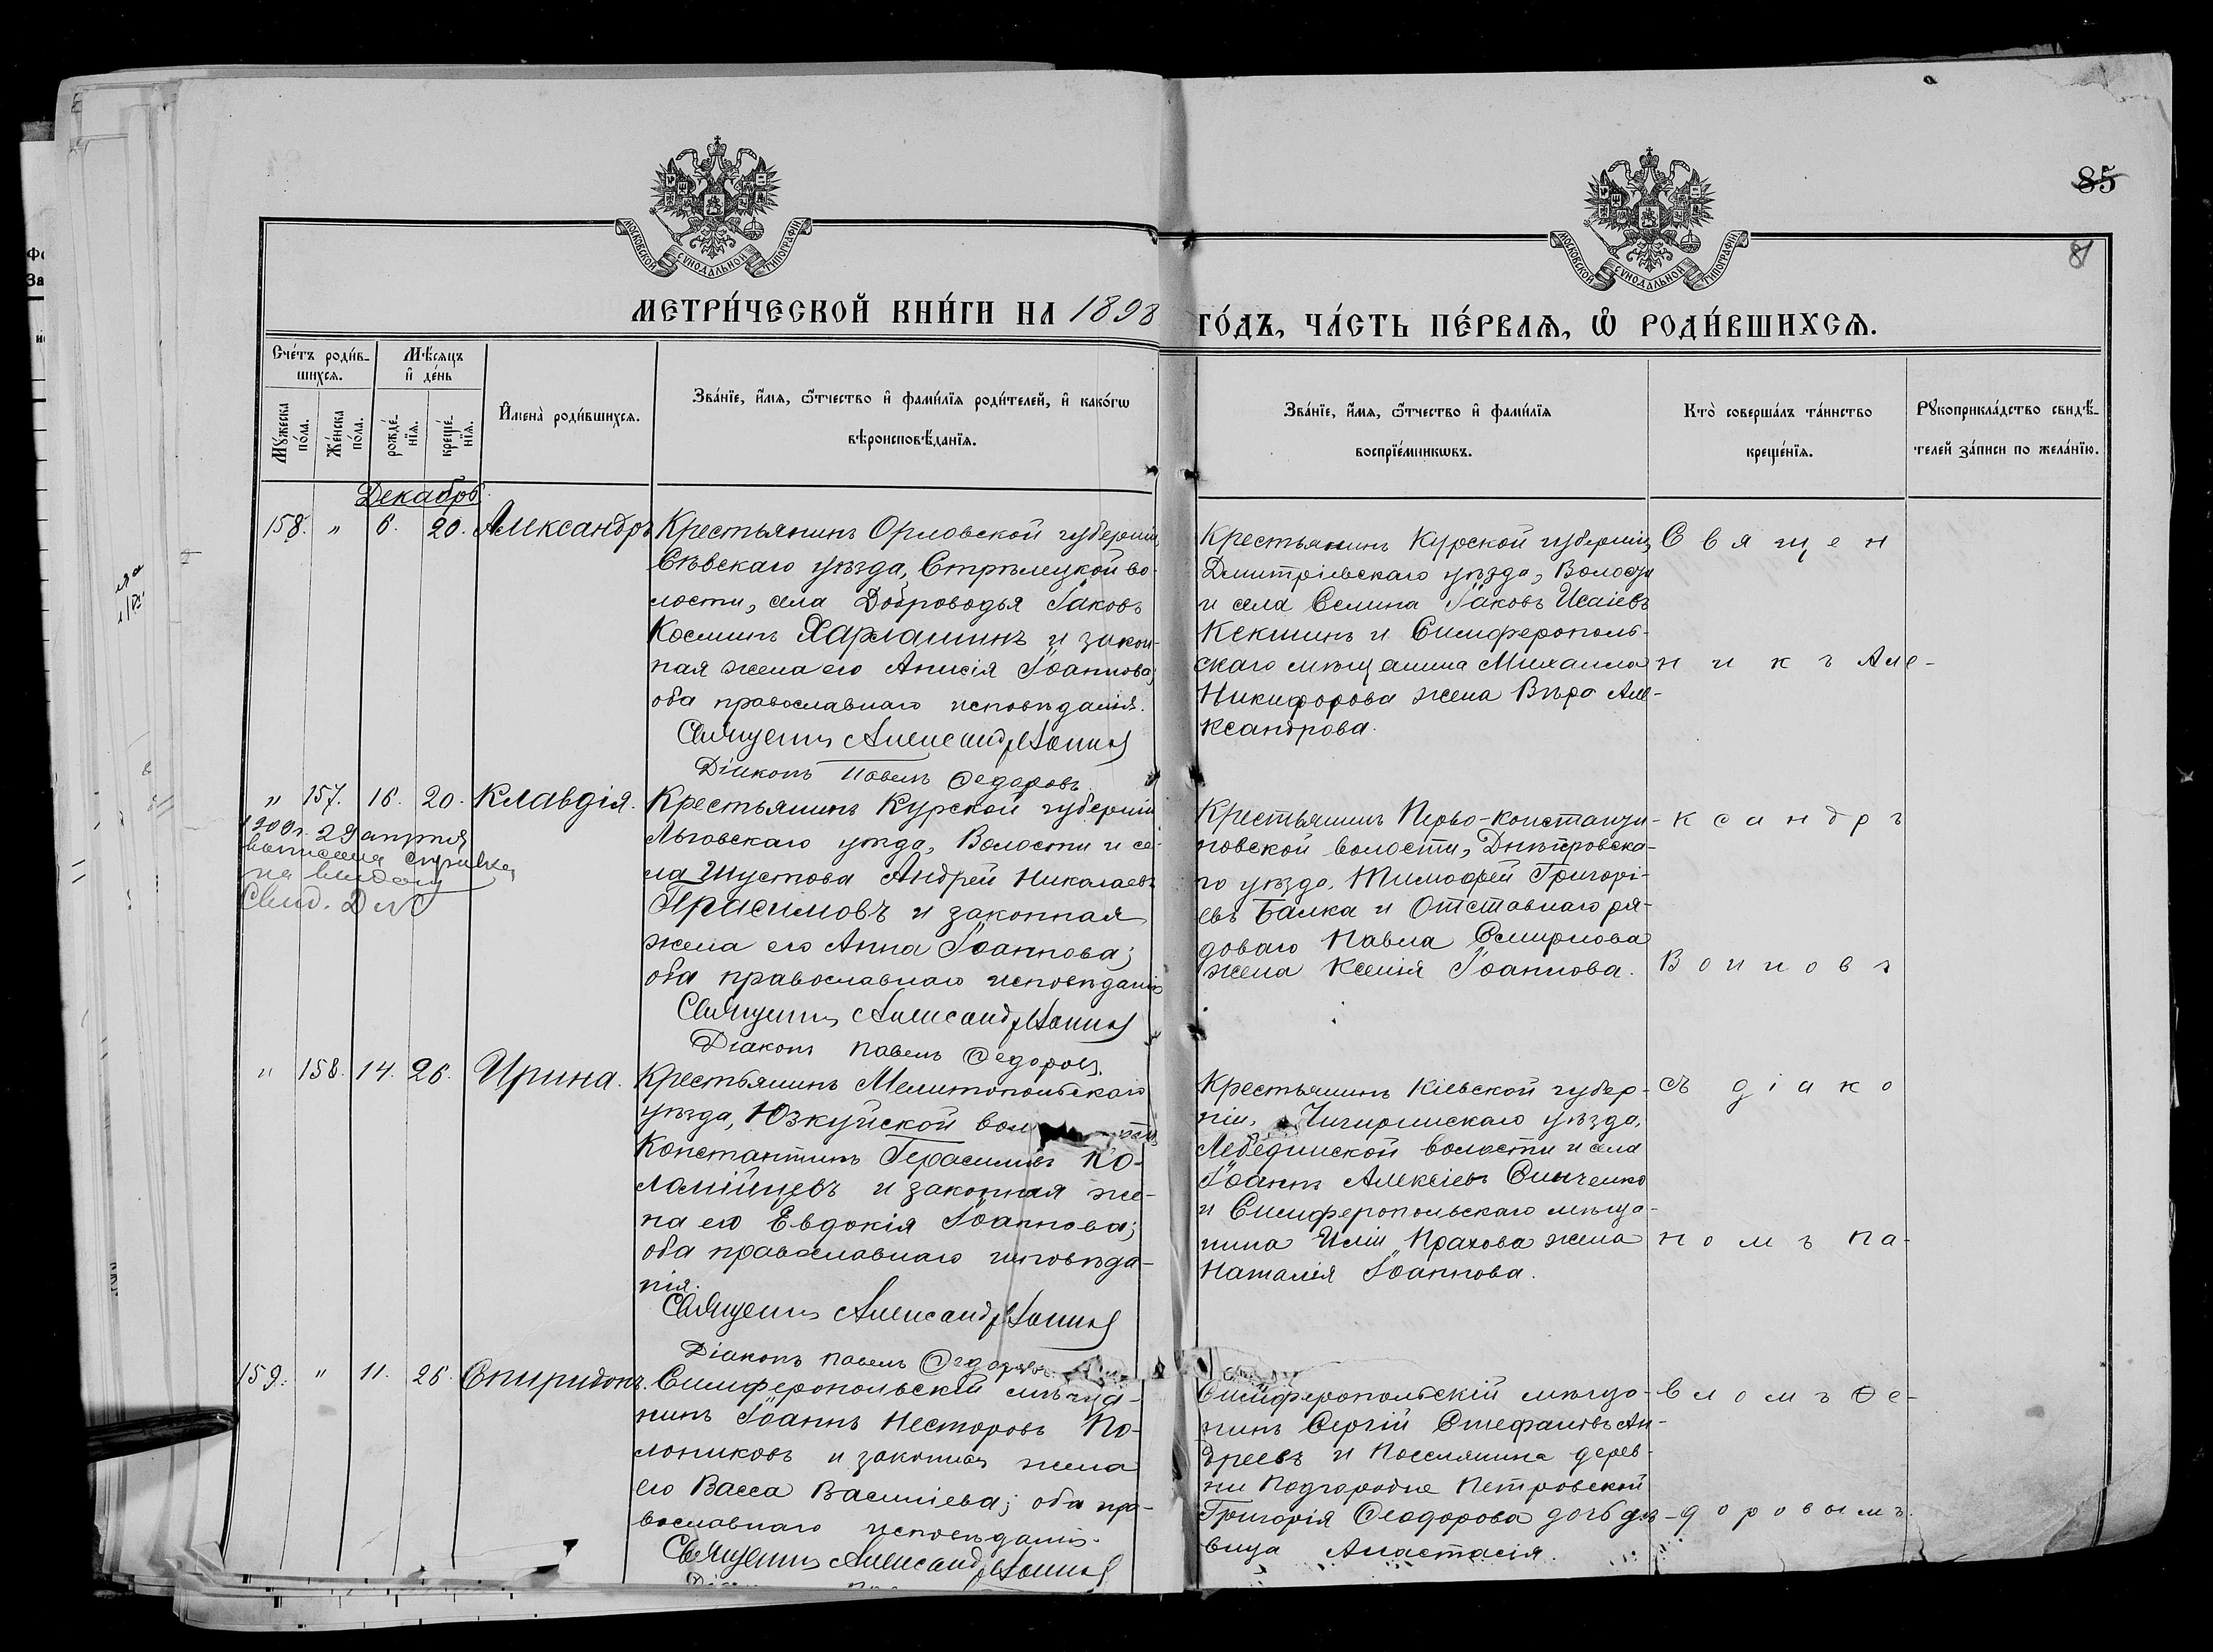 85
81
МОСКОВСКОЙ СѴНОДАЛЬНОЙ ТИПОГРАФІИ
МОСКОВСКОЙ СѴНОДАЛЬНОЙ ТИПОГРАФІИ
МЕТРИ́ЧЕСКОЙ КНИ́ГИ НА 1898
ГО́ДЪ, ЧА́СТЬ ПЕ́РВАѦ, Ѽ РОДИ́ВШИХСѦ.
Сче́тъ роди́в-
шихсѧ.
Мѣ́сѧцъ
и҆ де́нь
Мꙋ́жеска
по́ла.
Же́нска
по́ла.
рожде́-
нїѧ.
креще́-
нїѧ.
И҆мена̀ роди́вшихсѧ.
Зва́нїе, и҆́мѧ, ѻ҆́тчество и҆ фами́лїѧ роди́телей, и҆ како́гѡ
вѣроисповѣ́данїѧ.
Зва́нїе, и҆́мѧ, ѻ҆́тчество и҆ фами́лїѧ
воспрїе́мникѡвъ.
Кто̀ соверша́лъ та́инство
креще́нїѧ.
Рꙋкоприкла́дство свидѣ́-
телей за́писи по жела́нїю.
Декабрь
158. " 6. 20. Александръ
Крестьянинъ Орловской губерніи,
Сѣвскаго уѣзда, Стрѣлецкой во-
лости, села Доброводья Іаковъ
Косминъ Харламинъ и закон-
ная жена его Анисія Іоаннова;
оба православнаго исповѣданія.
Священникъ Александръ
Діаконъ Павелъ Ѳедоровъ
Крестьянинъ Курской губерніи,
Дмитріевскаго уѣзда, Волости
и села Селина Іаковъ Исаіевъ
Кекшинъ и Симферополь-
скаго мѣщанина Михаила
Никифорова жена Вѣра Але-
ксандрова.
Священ
никъ Але-
" 157. 16. 20. Клавдія.
1900г. 29 апрѣля
выписана справка
Крестьянинъ Курской губерніи
Льговскаго уѣзда, Волости и се-
ла Шустова Андрей Николаевъ
Герасимовъ и законная
жена его Анна Іоаннова;
оба православнаго исповѣданія
Священникъ Александръ
Діаконъ Павелъ Ѳедоровъ.
Крестьянинъ Перво-константи-
новской волости, Днѣпровска-
го уѣзда, Тимофей Григорі-
евъ Балка и Отставнаго ря-
доваго Павла Смирнова
жена Ксенія Іоаннова.
ксандръ
Воиновъ
" 158. 14. 26. Ирина.
Крестьянинъ Мелитопольскаго
уѣзда, Юзкуйской
Константинъ Герасимовъ Ко-
ломійцевъ и законная же-
на его Евдокія Іоаннова;
оба православнаго исповѣда-
нія.
Священникъ Александръ
Діаконъ Павелъ Ѳедоровъ
Крестьянинъ Кіевской губер-
ніи, Чигиринскаго уѣзда,
Лебединской волости и села
Іоаннъ Алексіевъ Синченко
и Симферопольскаго мѣща-
нина Иліи Прахова жена
Наталія Іоаннова.
съ діако
номъ Па-
159. " 11. 26. Спиридонъ.
Симферопольскій мѣща-
нинъ Іоаннъ Несторовъ По-
лониковъ и законная жена
его Васса Василіева; оба пра-
вославнаго исповѣданія.
Священникъ Александръ
Симферопольскій мѣща-
нинъ Сергій Стефановъ Ан-
дреевъ и Поселянина дерев-
ни Подгородне Петровской
Григорія Ѳеодорова дочь дѣ-
вица Анастасія.
вломъ Ѳе-
доровымъ.